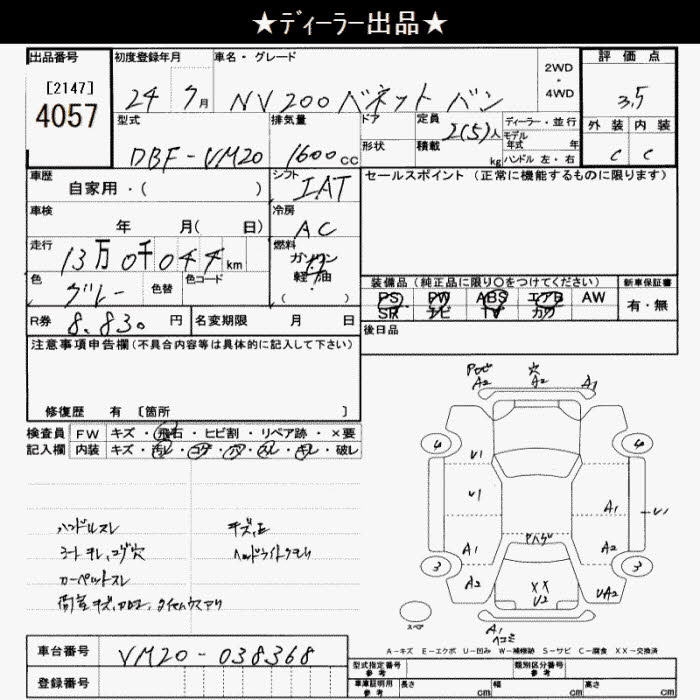 ★ディーラー出品★
出品番号 初度登録年月 車名・グレード 2WD・4WD 評価点
[2147]
4057
24 7月 NV200バネット バン 3.5
型式 排気量 ドア 定員 ディーラー・並行 外装 内装
DBF-VM20 1600cc 形状 積載 2(5)人 kg モデル年式 年 ハンドル 左・右 C C
車歴 シフト セールスポイント(正常に機能するものに限ります)
自家用・( ) IAT
車検 冷房
年 月( 日) AC
走行 燃料
13万0千044km ガソリン
軽油
( )
色 色替 色コード 装備品(純正品に限り○をつけてください) 新車保証書
グレー PS PW ABS エアB AW 有・無
SR ナビ TV カワ
R券 8,830円 名変期限 月 日 後日品
注意事項申告欄(不具合内容等は具体的に記入して下さい)
修復歴 有 [箇所 ]
検査員 FW キズ・飛石・ヒビ割・リペア跡・×要
記入欄 内装 キズ・汚レ・コゲ・穴・スレ・キレ・破レ
A2 穴 A2 A1
4 4
U1
U1 A1 U1
A1 ヤハゲ A1
3 3
A2 XX U2 UA2
スペア A1 ヘコミ
ハンドルスレ キズ、凹
シートキレ、コゲ穴 ヘッドライトクモリ
カーペットスレ
A-キズ E-エクボ U-凹み W-補修跡 S-サビ C-腐食 XX-交換済
車台番号 VM20-038368 型式指定番号 参考 類別区分番号 参考
登録番号 車庫証明用 参考 長さ cm 幅 cm 高さ cm